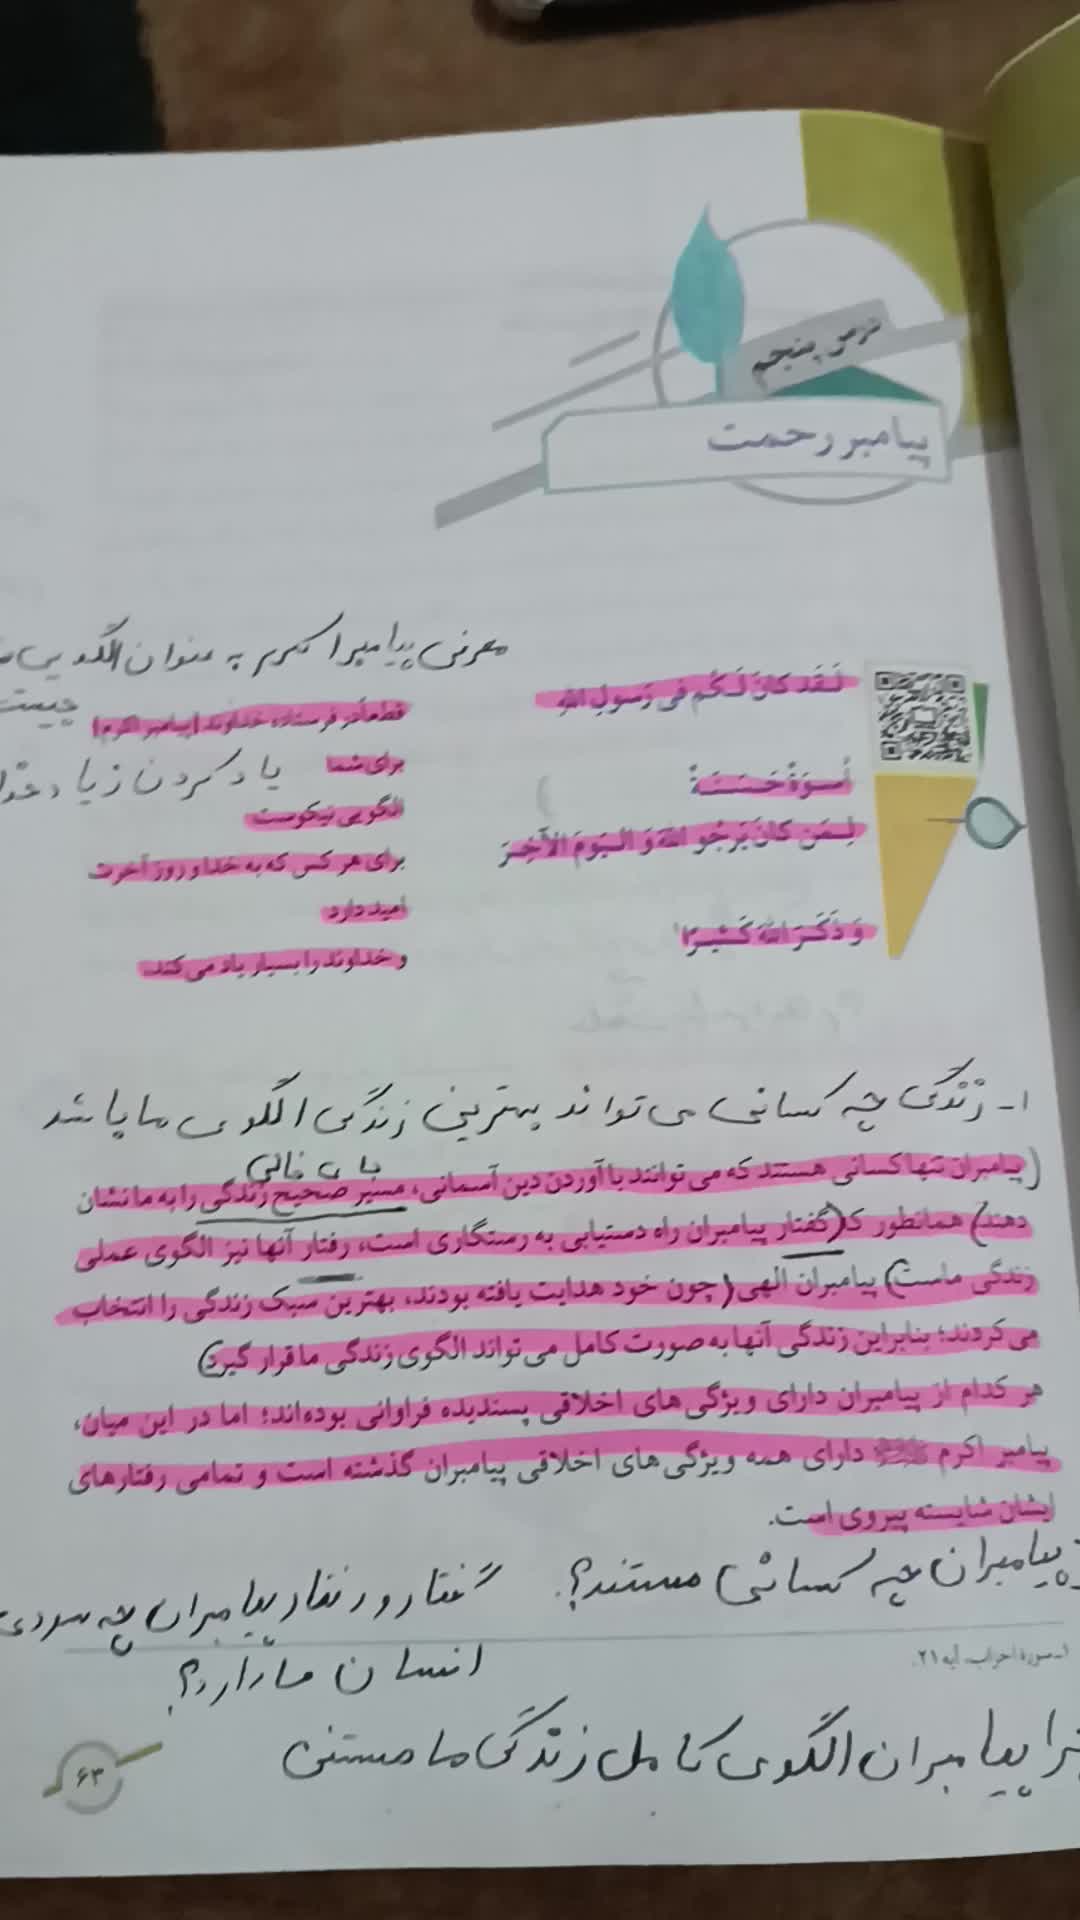 درس پنجم
پیامبر رحمت
معرفی پیامبر اکرم به عنوان الگویی
چیست
لَـقَد کانَ لَـکُم فی رَسولِ اللّٰهِ
قطعاً در فرستاده خداوند (پیامبر اکرم)
برای شما
یاد کردن زیاد خدا
اُسـوَةٌ حَسَـنَـةٌ
الگویی نیکوست
لِـمَن کانَ یَرجُو اللّٰهَ وَ الـیَومَ الآخِـرَ
برای هر کس که به خدا و روز آخرت
امید دارد
وَ ذَکَـرَ اللّٰهَ کَـثیـرًا۱
و خداوند را بسیار یاد می‌کند.
۱- زندگی چه کسانی می تواند بهترین زندگی الگوی ما باشد
جای خالی
(پیامبران تنها کسانی هستند که می‌توانند با آوردن دین آسمانی، مسیر صحیح زندگی را به ما نشان
دهند) همانطور که (گفتار پیامبران راه دستیابی به رستگاری است، رفتار آنها نیز الگوی عملی
زندگی ماست) پیامبران الهی (چون خود هدایت یافته بودند، بهترین سبک زندگی را انتخاب
می‌کردند؛ بنابراین زندگی آنها به صورت کامل می‌تواند الگوی زندگی ما قرار گیرد)
هر کدام از پیامبران دارای ویژگی‌های اخلاقی پسندیده فراوانی بوده‌اند؛ اما در این میان،
پیامبر اکرم ﷺ دارای همه ویژگی‌های اخلاقی پیامبران گذشته است و تمامی رفتارهای
ایشان شایسته پیروی است.
پیامبران چه کسانی هستند؟
گفتار و رفتار پیامبران چه سودی
انسان ها دارد؟
۱ـ سورهٔ احزاب، آیه ۲۱.
چرا پیامبران الگوی کامل زندگی ما هستند
۶۳